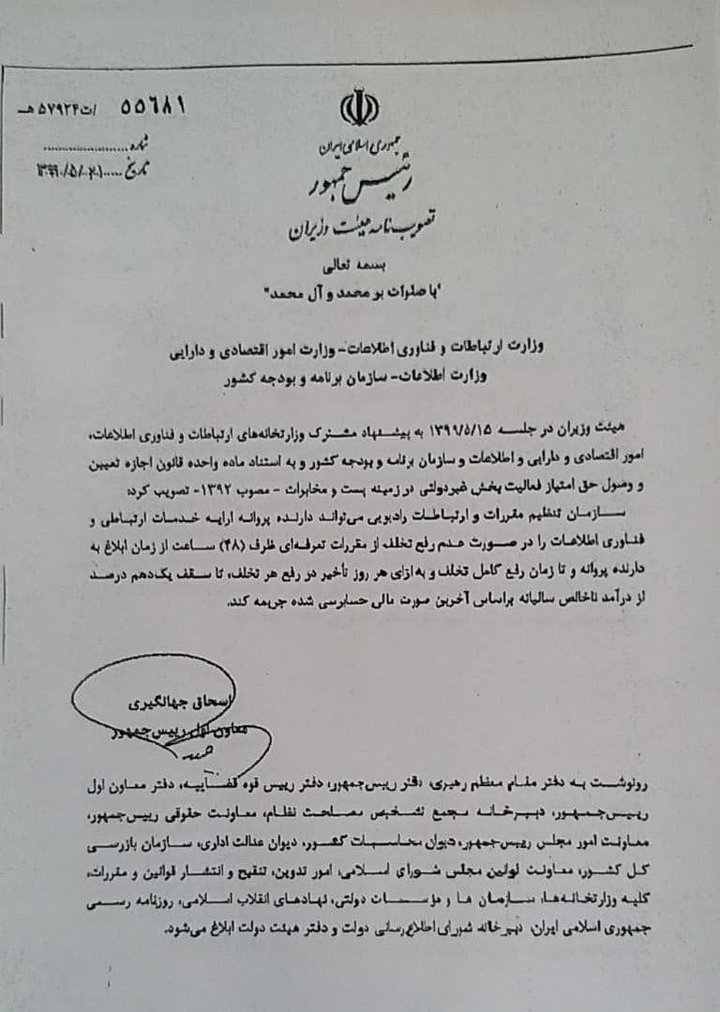 ۵۵۶۸۱ /ت۵۷۹۲۴هـ
شماره
تاریخ ۱۳۹۹/۵/۲۱
جمهوری اسلامی ایران
رئیس جمهور
تصویب نامه هیئت وزیران
بسمه تعالی
"با صلوات بر محمد و آل محمد"
وزارت ارتباطات و فناوری اطلاعات- وزارت امور اقتصادی و دارایی
وزارت اطلاعات- سازمان برنامه و بودجه کشور
هیئت وزیران در جلسه ۱۳۹۹/۵/۱۵ به پیشنهاد مشترک وزارتخانه‌های ارتباطات و فناوری اطلاعات،
امور اقتصادی و دارایی و اطلاعات و سازمان برنامه و بودجه کشور و به استناد ماده واحده قانون اجازه تعیین
و وصول حق امتیاز فعالیت بخش غیردولتی در زمینه پست و مخابرات - مصوب ۱۳۹۲- تصویب کرد:
سازمان تنظیم مقررات و ارتباطات رادیویی می‌تواند دارنده پروانه ارایه خدمات ارتباطی و
فناوری اطلاعات را در صورت عدم رفع تخلف از مقررات تعرفه‌ای ظرف (۴۸) ساعت از زمان ابلاغ به
دارنده پروانه و تا زمان رفع کامل تخلف و به ازای هر روز تأخیر در رفع هر تخلف، تا سقف یک‌دهم درصد
از درآمد ناخالص سالیانه براساس آخرین صورت مالی حسابرسی شده جریمه کند.
اسحاق جهانگیری
معاون اول رییس‌جمهور
رونوشت به دفتر مقام معظم رهبری، دفتر رییس‌جمهور، دفتر رییس قوه قضاییه، دفتر معاون اول
رییس‌جمهور، دبیرخانه مجمع تشخیص مصلحت نظام، معاونت حقوقی رییس‌جمهور،
معاونت امور مجلس رییس‌جمهور، دیوان محاسبات کشور، دیوان عدالت اداری، سازمان بازرسی
کل کشور، معاونت قوانین مجلس شورای اسلامی، امور تدوین، تنقیح و انتشار قوانین و مقررات،
کلیه وزارتخانه‌ها، سازمان ها و مؤسسات دولتی، نهادهای انقلاب اسلامی، روزنامه رسمی
جمهوری اسلامی ایران، دبیرخانه شورای اطلاع‌رسانی دولت و دفتر هیئت دولت ابلاغ می‌شود.